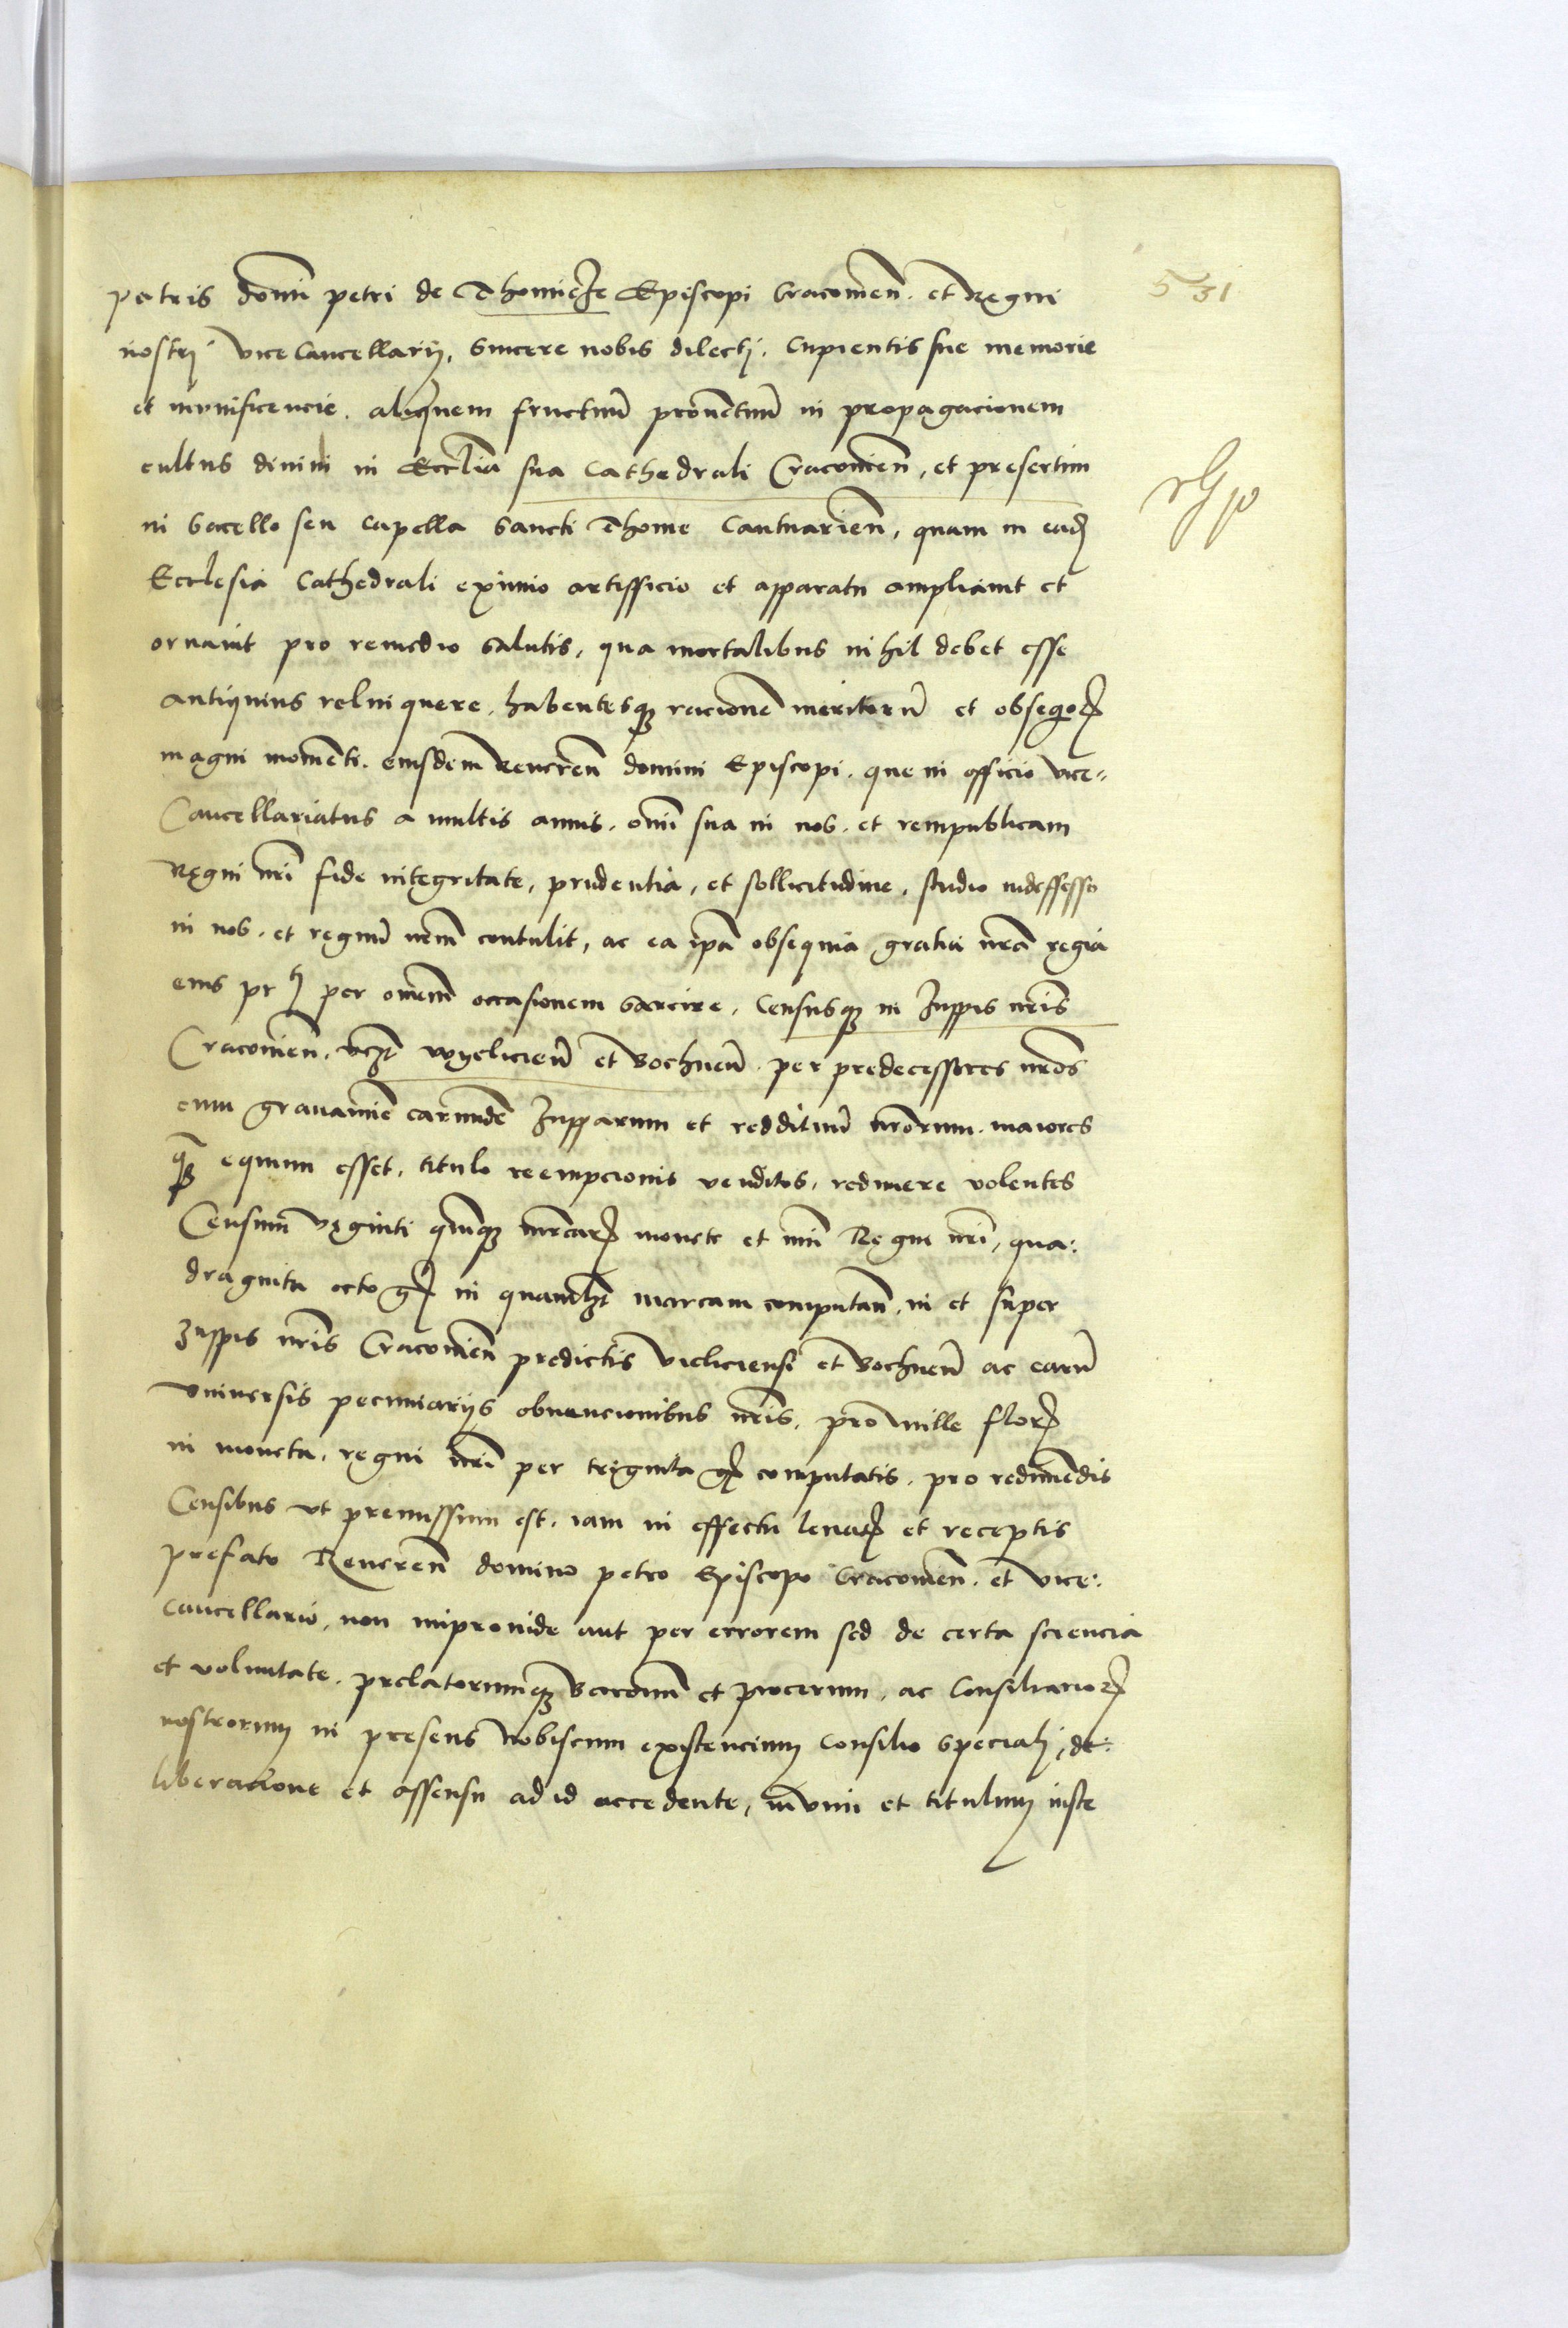 patris domī petri de Thomicze Episcopi Cracouień. et Regni
531
nostrj vice Cancellarij, Sincere nobis dilectj. Cupientis sue memorie
et mvnificencie. aliquem fructuū prouentuū in propagacionem
cultus diuini in Ecclīa sua Cathedrali Cracouień, et presertim
in Sacello seu Capella Sancti Thome Cantuarień, quam in eadꝫ
Ecclesia Cathedrali eximio artifficio et apparatu ampliauit et
ornauit pro remedio Salutis, qua mortalibus nihil debet esse
antiquius relinquere. habentesqꝫ racionē meritorū et obsequioꝝ
magni momēti. eiusdem Reuereñ domini Episcopi. que in officio vice⸗
Cancellariatus a multis annis. omī sua in nos. et rempublicam
Regni nrī fide integritate, prudentia, et sollicitudine. studio indeffesso
in nos. et regnū nrūm contulit, ac ea ipā obsequia gratia nrā regia
eius pr per omnem occasionem Sarcire. Censusqꝫ in Zuppis nrīs
Cracouień. vczt wyelicień et Bochneñ. per predecessores nrōs
cum grauamīe earundē Zupparum et reddituū nrōrum. maiores
qꝫ equum esset. titulo reempcionis venditos. redimere volentes
Censum viginti quīqꝫ mrcarꝝ monete et nūi Regni nrī, qua:
draginta octo gꝝ in quamlꝫt marcam computań. in et super
Zuppis nrīs Cracouień predictis Vieliciensi et Bochneñ ac earū
vniuersis pecuniarijs obuencionibus nrīs. pro mille florꝝ
in moneta. regni nrī per triginta gꝝ computatis. pro redimēdis
Censibus vt premissum est. iam in effectu leuatꝝ et receptis
prefato Reuereñ domino petro Episcopo Cracouień. et vice:
cancellario, non improuide aut per errorem sed de certa sciencia
et voluntate. prelatorumqꝫ Baronum et procerum. ac Consiliarioꝝ
nostrorum in presens nobiscum existencium consilio specialj, de:
liberacione et assensu ad id accedente, in vim et titulum iuste